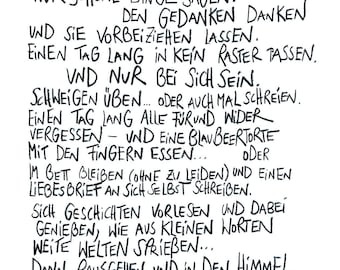 NUR SCHÖNE DINGE SAGEN.
DEN GEDANKEN DANKEN
UND SIE VORBEIZIEHEN LASSEN.
EINEN TAG LANG IN KEIN RASTER PASSEN.
UND NUR BEI SICH SEIN.
SCHWEIGEN ÜBEN... ODER AUCH MAL SCHREIEN.
EINEN TAG LANG ALLE FÜR UND WIDER
VERGESSEN – UND EINE BLAUBEERTORTE
MIT DEN FINGERN ESSEN... ODER
IM BETT BLEIBEN (OHNE ZU LEIDEN) UND EINEN
LIEBESBRIEF AN SICH SELBST SCHREIBEN.
SICH GESCHICHTEN VORLESEN UND DABEI
GENIEßEN, WIE AUS KLEINEN WORTEN
WEITE WELTEN SPRIEßEN...
DANN RAUSGEHEN UND IN DEN HIMMEL